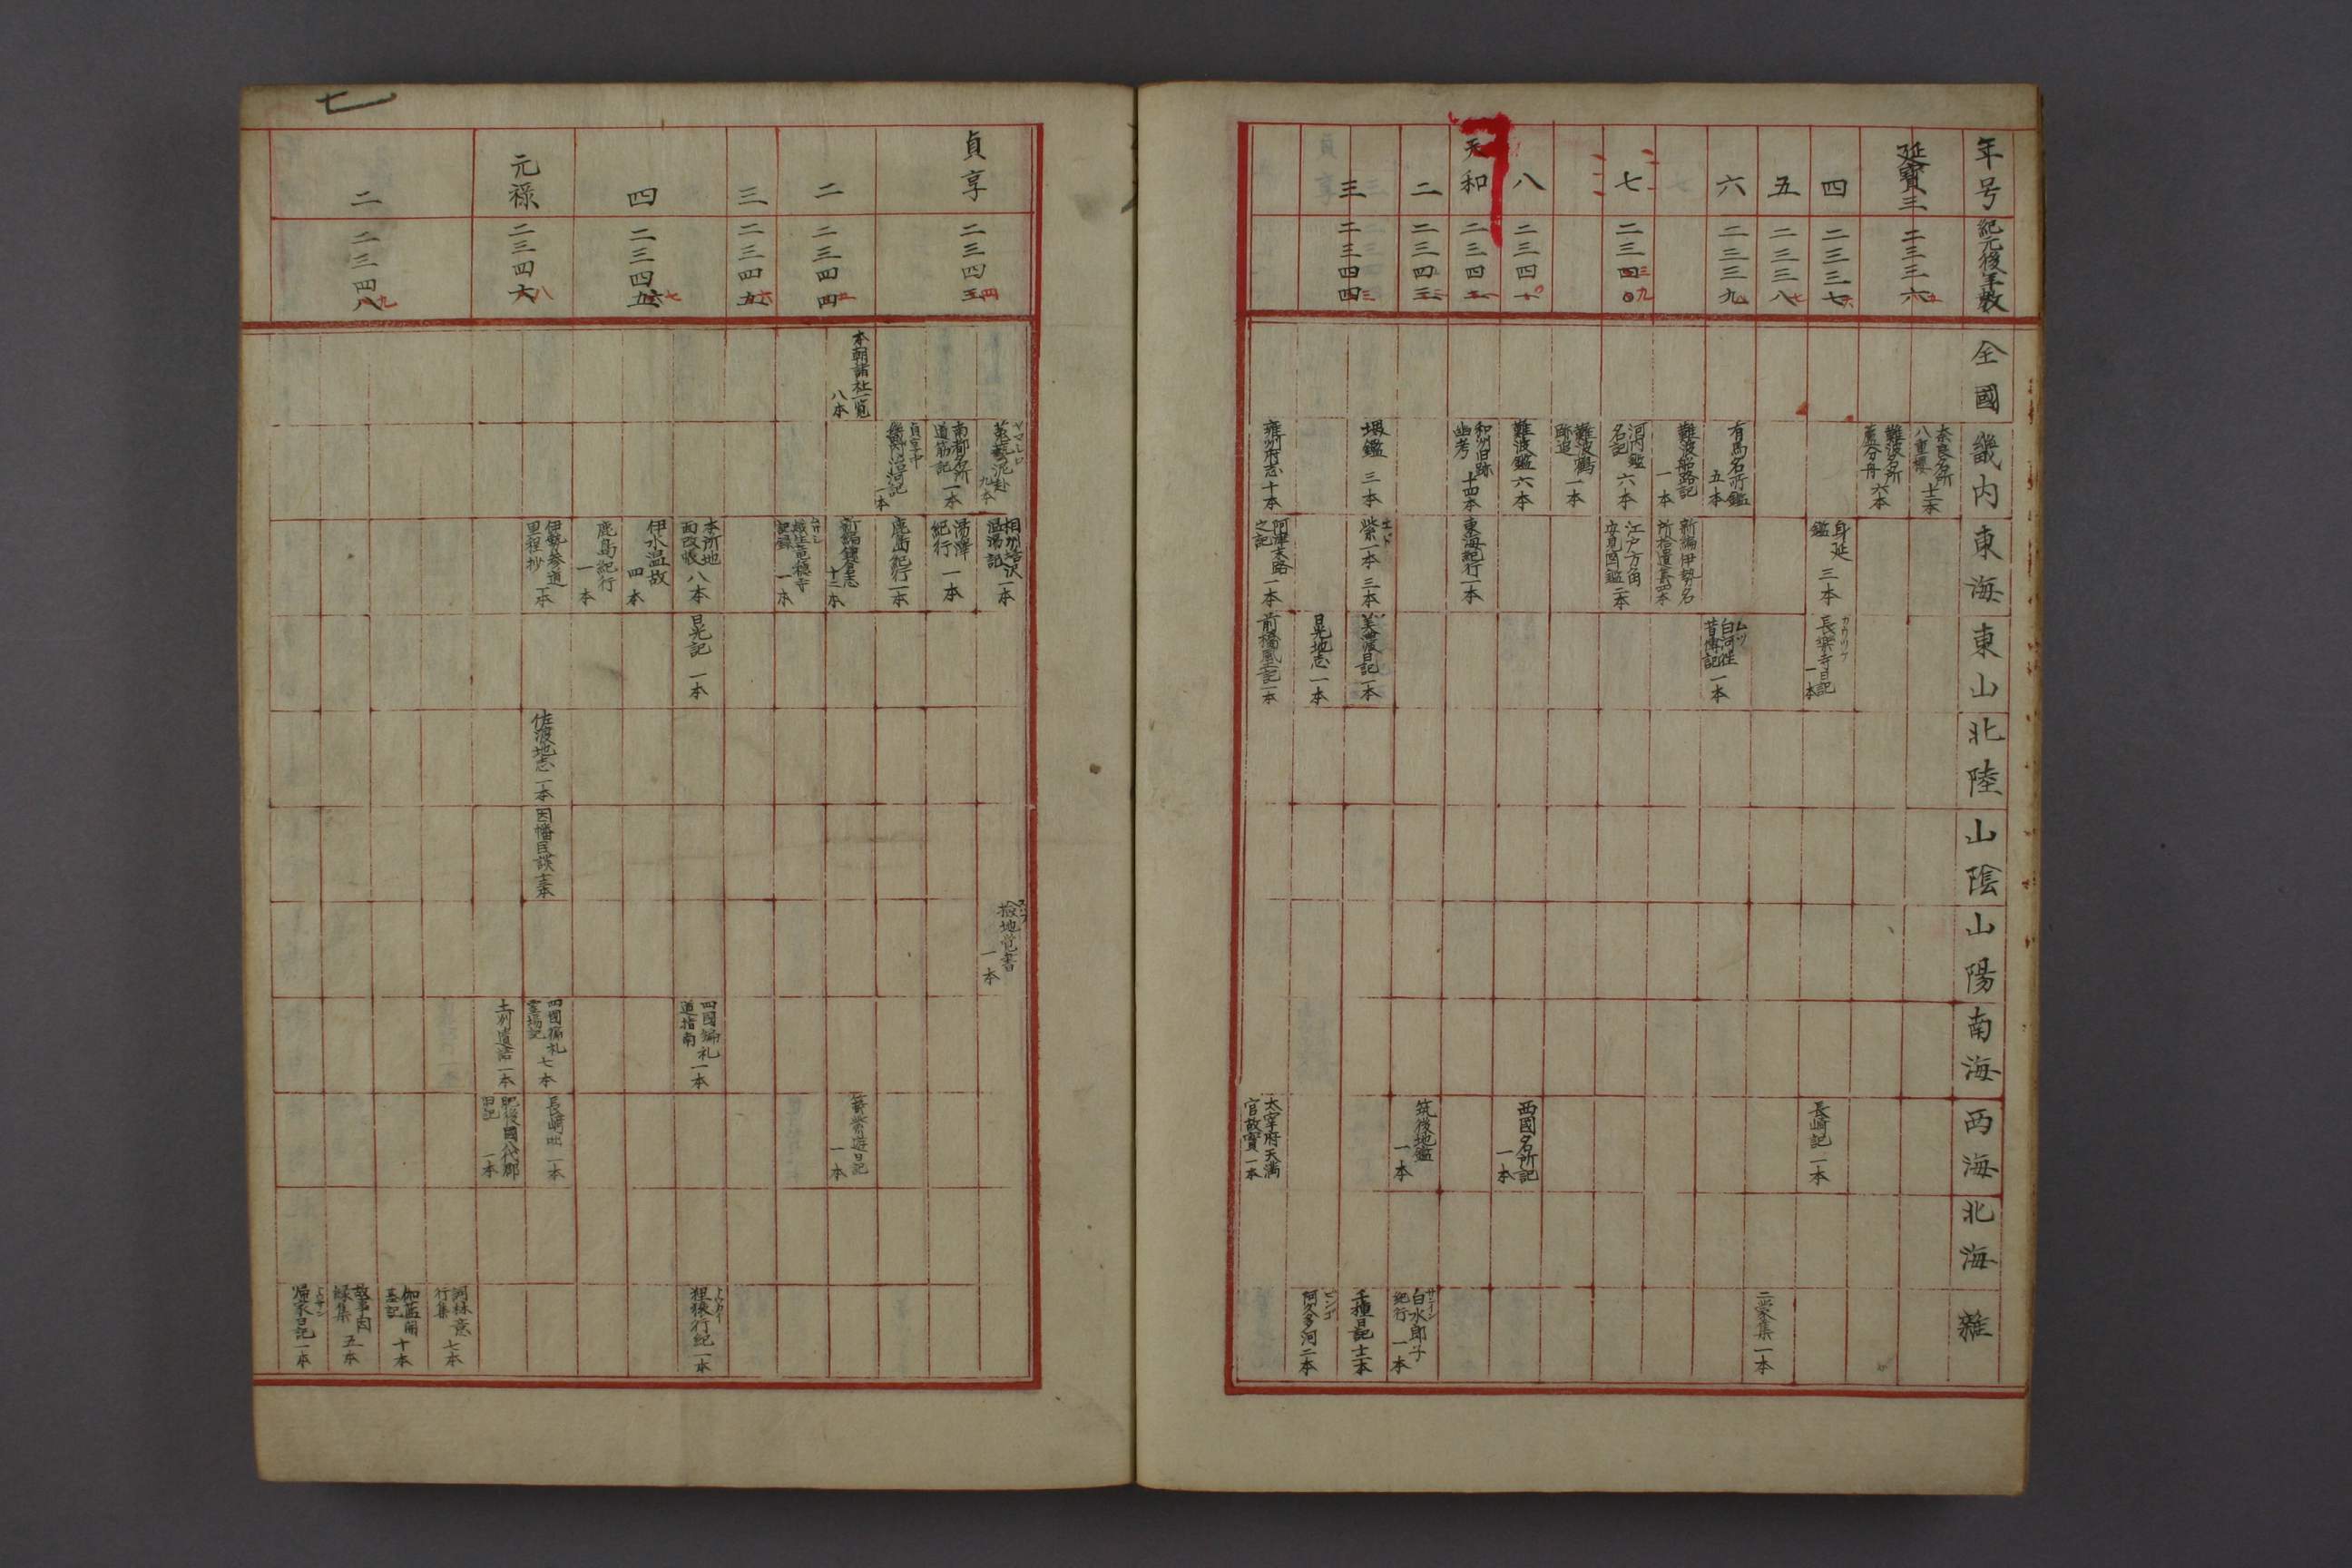 年号
紀元後年数
全國
畿内
東海
東山
北陸
山陰
山陽
南海
西海
北海
雜
延寶三
二三三六
奈良名所
八重櫻 十二本
難波名所
蘆分舟 六本
四
二三三七
身延
鑑 三本
長樂寺日記
一本
長崎記 一本
五
二三三八
二蒙集 一本
六
二三三九
有馬名所鑑
五本
ムツ
白河往
昔傳記 一本
難波船路記
一本
新編伊勢名
所拾遺 四本
七
二三四〇
三九
河内鑑
名記 六本
江戸方角
安見図鑑 二本
難波鶴
跡追 一本
八
二三四一
難波鑑 六本
西國名所記
一本
天和
二三四二
和州旧跡
幽考 十四本
東海紀行 一本
二
二三四三
筑後地鑑
一本
白水郎子
紀行 一本
三
二三四四
三
堺鑑 三本
紫一本 三本
美濃日記 一本
千種日記 十二本
日光地志 一本
阿久多河 二本
雍州府志 十本
阿津末路
之記 一本
前橋風土記 一本
太宰府天満
宮故實 一本
七
貞享
二三四五
四
ヤマシロ
菟藝泥赴
九本
相州塔沢
温湯記 一本
検地覚書
一本
南都名所
道筋記 一本
湯澤
紀行 一本
貞享中
一本
鹿島紀行 一本
二
二三四四
五
本朝諸社一覧
八本
新編鎌倉志
十二本
一本
記録 一本
三
二三四五
六
四
二三四六
七
本所地
面改帳 八本
日光記 一本
四國徧礼
道指南 一本
狙狭行紀 一本
伊水温故
四本
鹿島紀行
一本
元禄
二三四六
八
伊勢参道
里程抄 一本
佐渡地志 一本
因幡民談
四國徧礼
霊場記 七本
長崎 一本
土州遺語 一本
肥後國八代郡
日記 一本
二
二三四八
九
河林意
行集 七本
伽藍開
基記 十本
故事因
縁集 五本
帰家日記 一本